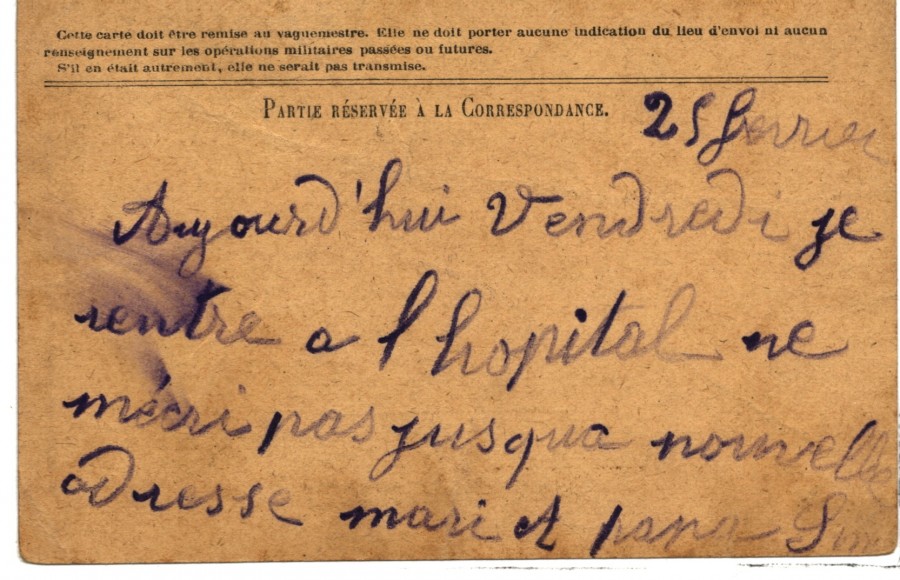 Cette carte doit être remise au vaguemestre. Elle ne doit porter aucune indication du lieu d'envoi ni aucun
renseignement sur les opérations militaires passées ou futures.
S'il en était autrement, elle ne serait pas transmise.
PARTIE RÉSERVÉE À LA CORRESPONDANCE.
25 fevrier
Aujourd'hui Vendredi je
rentre a l hopital ne
mécri pas jusqua nouvelle
adresse mari et papa